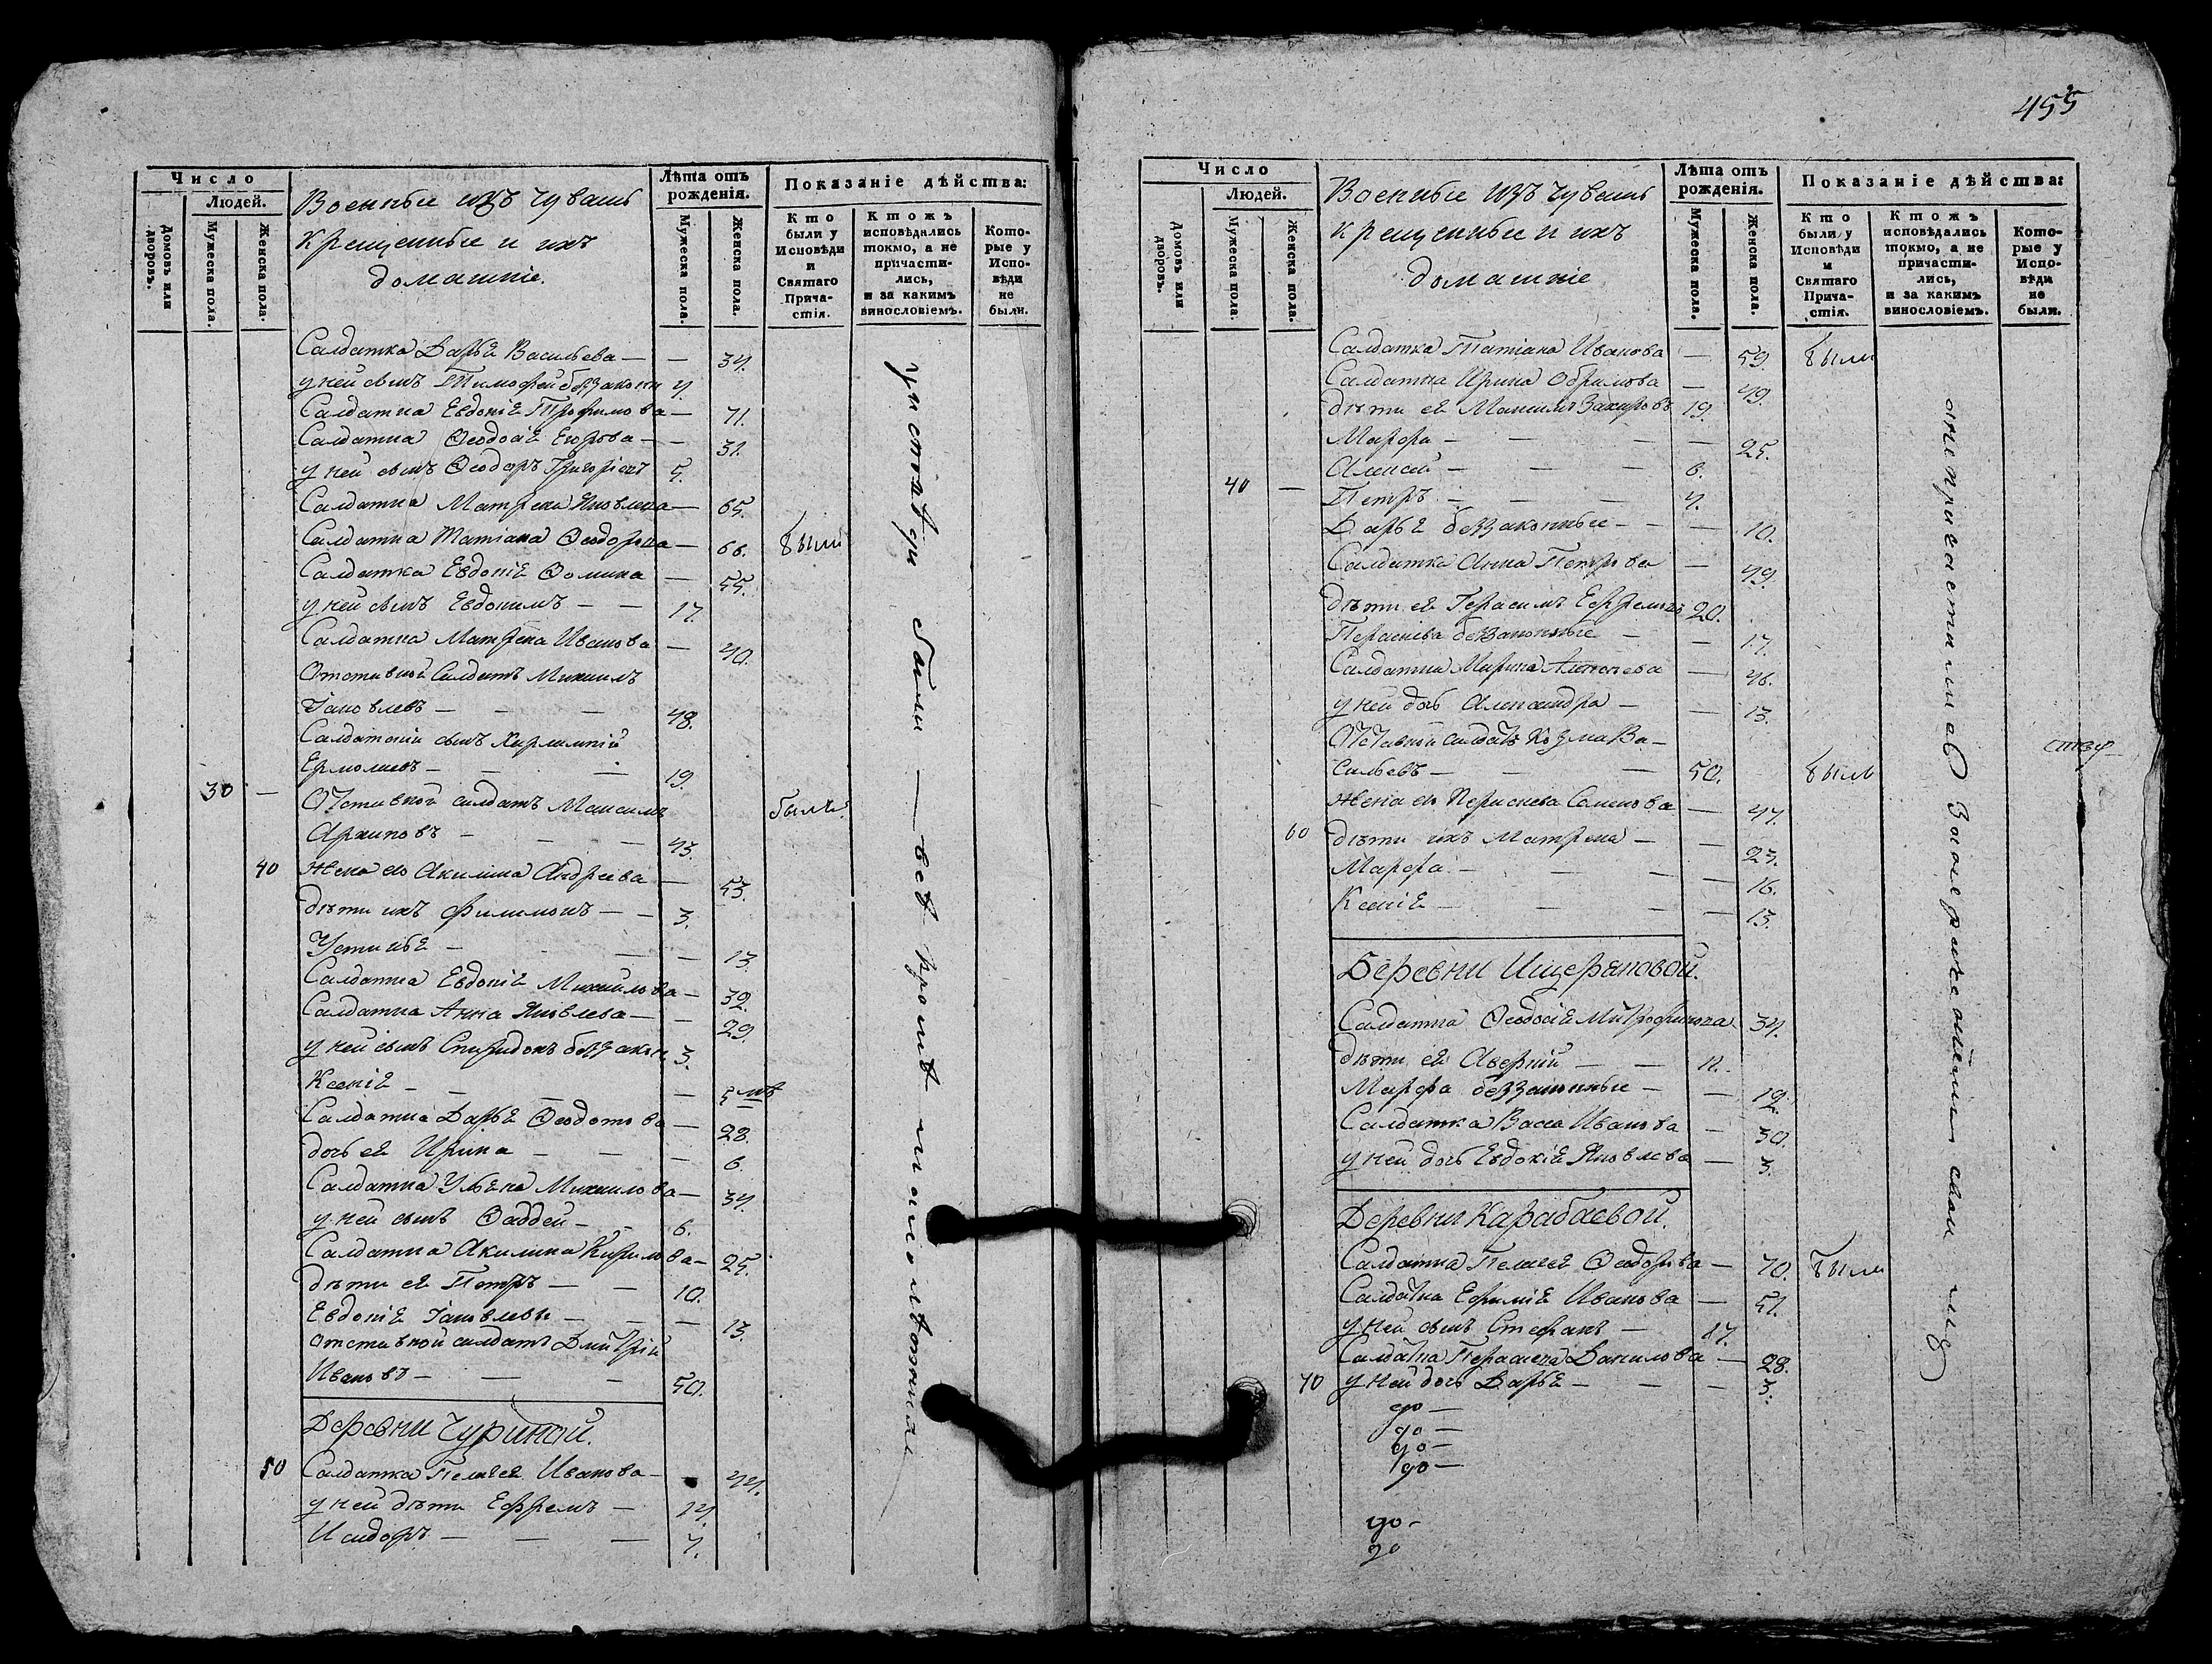 Число
Людей.
Домовъ или дворовъ.
Мужеска пола.
Женска пола.
Военные изъ чувашъ
крещенные и ихъ
домашніе.
Лѣта отъ рожденія.
Мужеска пола.
Женска пола.
Показаніе дѣйства:
Кто были у Исповѣди и Святаго Прича-стія.
Ктожъ исповѣдались токмо, а не причасти-лись, и за какимъ винословіемъ.
Кото-рые у Испо-вѣди не были.
Салдатка Дарья Васильева — — 34.
у ней сынъ Тимофей беззаконн 4.
Салдатка Евдокія Трофимова — 71.
Салдатка Ѳеодосія Егорова — — 31.
у ней сынъ Ѳеодоръ Григорьевъ 5.
Салдатка Матрена Яковлева — 65.
Салдатка Татіана Ѳеодорова — 66. были
Салдатка Евдокія Ѳомина — 55.
у ней сынъ Евдокимъ — — 17.
Салдатка Матрена Иванова — 40.
Отставной Салдатъ Михаилъ
Іаковлевъ — — — 48.
Салдатскій сынъ Харлампій
Ермолаевъ — — 19.
30 — Отставной салдатъ Максимъ былъ
Архиповъ — — 43.
40 Жена его Акилина Андреева — 53.
дѣти ихъ Филимонъ — — 3.
Устинья — — 13.
Салдатка Евдокія Михайлова — 32.
Салдатка Анна Яковлева — — 29.
у ней сынъ Спиридонъ беззакон. 3.
Ксенія — — — 5 мѣ
Салдатка Дарья Ѳеодотова — 28.
дочь ея Ирина — — — 6.
Салдатка Ульяна Михаилова — 34.
у ней сынъ Ѳаддей — — 6.
Салдатка Акилина Кирилова — 25.
дѣти ея Петръ — — 10.
Евдокія Іаковлевы — — — 13.
отставной салдатъ Дмитрій
Ивановъ — — — 50.
Деревни Чуриной.
50 Салдатка Пелагея Иванова — 44.
у ней дѣти Ефремъ — 14.
Исидоръ — — — 7.
были — всѣ кромѣ малолѣтныхъ
455
Число
Людей.
Домовъ или дворовъ.
Мужеска пола.
Женска пола.
Военные изъ чувашъ
крещенные и ихъ
домашніе
Лѣта отъ рожденія.
Мужеска пола.
Женска пола.
Показаніе дѣйства:
Кто были у Исповѣди и Святаго Прича-стія.
Ктожъ исповѣдались токмо, а не причасти-лись, и за какимъ винословіемъ.
Кото-рые у Испо-вѣди не были.
Салдатка Татіана Иванова — 59. были
Салдатка Ирина — 49.
дѣти ея Максимъ Захаровъ 19.
Марфа — — — — 25.
Алексей — — — 6.
40 — Петръ — — — 4.
Дарья беззаконные — — — 10.
Салдатка Анна Петрова — 49.
дѣти ея Герасимъ Ефремовъ 20.
Параскева беззаконные — — 17.
Салдатка Марина — 46.
у ней дочь Александра — — 13.
Отставной салдатъ Козма Ва-
сильевъ — — 50. былъ
жена его Параскева Семенова — 47.
60 дѣти ихъ Матрена — — 23.
Марфа — — — — 16.
Ксенія — — — 13.
Деревни Ищеряковой.
Салдатка Ѳеодосія Митрофанова 34.
дѣти ея Аверкій — — 11.
Марфа беззаконные — — 12.
Салдатка Васса Иванова — 30.
у ней дочь Евдокія Яковлева — 3.
Деревни Карабаевой.
Салдатка Пелагея Ѳеодорова — 70. были
Салдатка Ефимія Иванова — 51.
у ней сынъ Стефанъ — 17.
Салдатка Параскева Данилова — 28.
70 у ней дочь Дарья — — — 3.